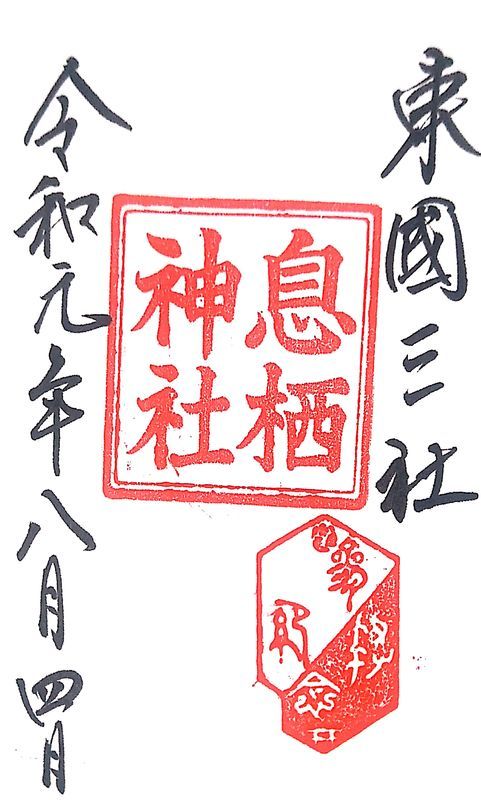 東國三社
息栖
神社
令和元年八月四日